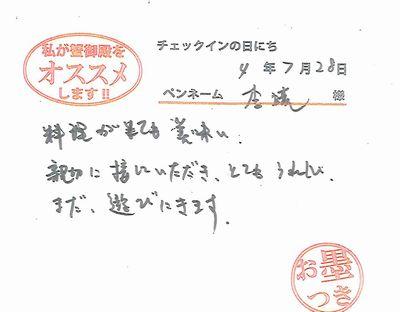 私が蟹御殿を
オススメ
します!!
チェックインの日にち
4年7月28日
ペンネーム 様
料理がとても美味い.
親切に接していただき、とてもうれしい.
まだ、遊びにきます.
お墨
つき